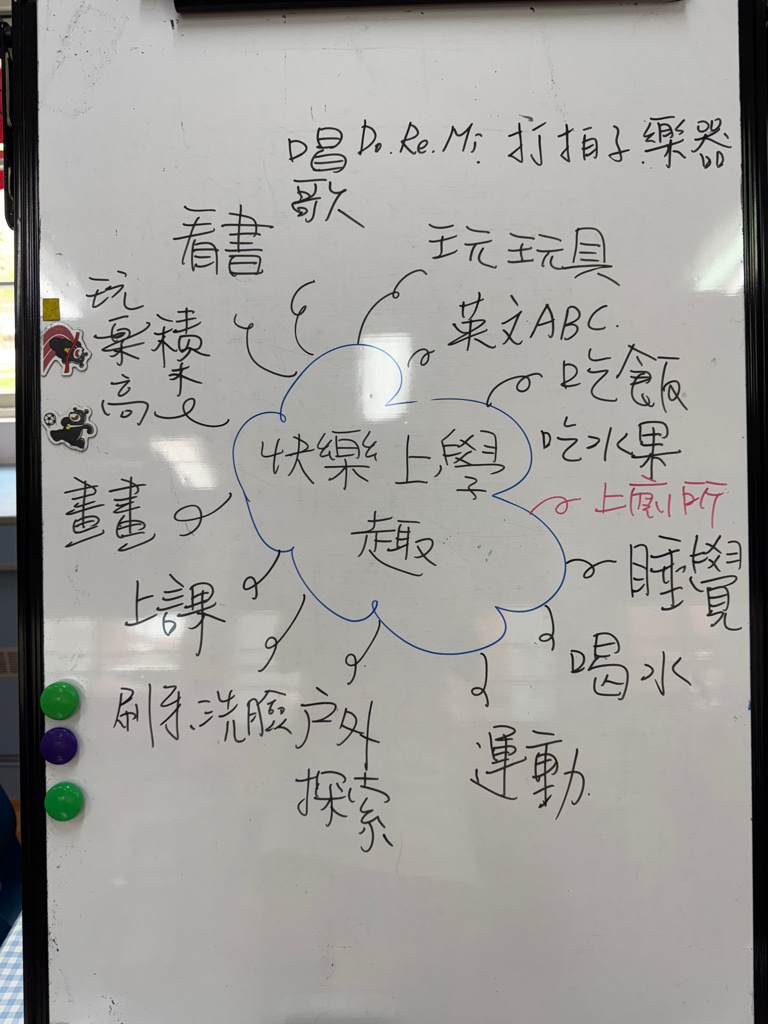 唱Do.Re.Mi.打拍子.樂器
歌
看書
玩玩具
玩
樂積
高木
英文ABC.
吃飯
吃水果
快樂上學
趣
上廁所
畫畫
睡覺
上課
喝水
刷牙.洗臉
戶外
探索
運動